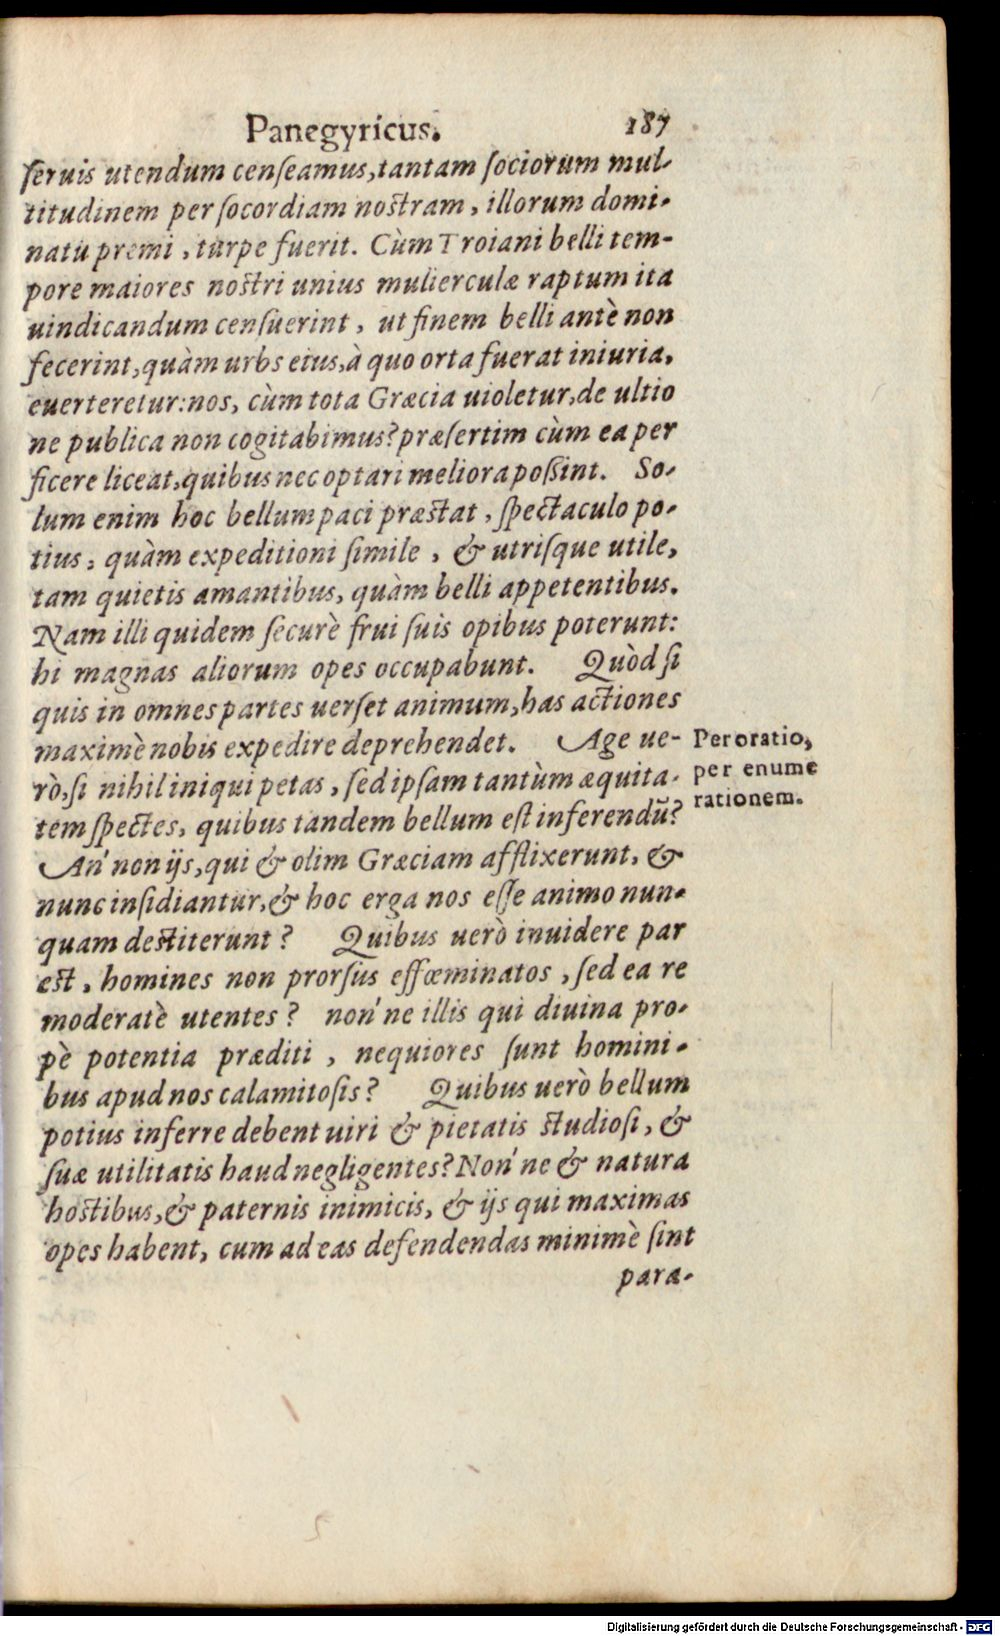 Panegyricus. 187
ſeruis utendum cenſeamus, tantam ſociorum mul-
titudinem per ſocordiam noſtram, illorum domi-
natu premi, turpe fuerit. Cùm Troiani belli tem-
pore maiores noſtri unius mulierculæ raptum ita
uindicandum cenſuerint, ut finem belli antè non
fecerint, quàm urbs eius, à quo orta fuerat iniuria,
euerteretur: nos, cùm tota Græcia uioletur, de ultio
ne publica non cogitabimus? præſertim cùm ea per
ficere liceat, quibus nec optari meliora poſsint. So-
lum enim hoc bellum paci præſtat, ſpectaculo po-
tius, quàm expeditioni ſimile, & utriſque utile,
tam quietis amantibus, quàm belli appetentibus.
Nam illi quidem ſecurè frui ſuis opibus poterunt:
hi magnas aliorum opes occupabunt. Quòd ſi
quis in omnes partes uerſet animum, has actiones
maximè nobis expedire deprehendet. Age ue-
rò, ſi nihil iniqui petas, ſed ipſam tantùm æquita-
tem ſpectes, quibus tandem bellum eſt inferendũ?
An' non ijs, qui & olim Græciam afflixerunt, &
nunc inſidiantur, & hoc erga nos eſſe animo nun-
quam deſtiterunt? Quibus uerò inuidere par
eſt, homines non prorſus effœminatos, ſed ea re
moderatè utentes? non' ne illis qui diuina pro-
pè potentia præditi, nequiores ſunt homini-
bus apud nos calamitoſis? Quibus uerò bellum
potius inferre debent uiri & pietatis ſtudioſi, &
ſuæ utilitatis haud negligentes? Non' ne & natura
hoſtibus, & paternis inimicis, & ijs qui maximas
opes habent, cum ad eas defendendas minimè ſint
para-
Peroratio,
per enume
rationem.
Digitalisierung gefördert durch die Deutsche Forschungsgemeinschaft - DFG